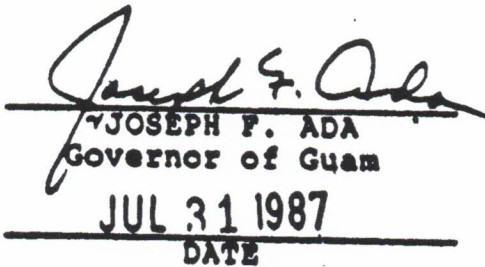 Joseph F. Ada
JOSEPH F. ADA
Governor of Guam
JUL 31 1987
DATE